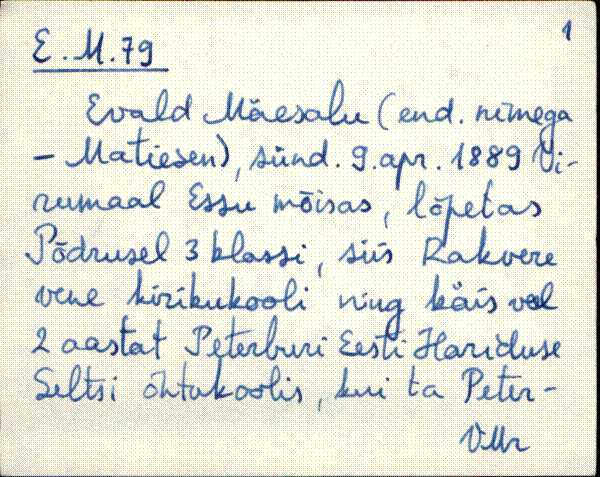 1
E. M. 79
Evald Mäesalu (end. nimega
- Matiesen), sünd. 9. apr. 1889 Vi-
rumaal Essu mõisas, lõpetas
Põdrusel 3 klassi, siis Rakvere
vene kirikukooli ning käis veel
2 aastat Peterburi Eesti Hariduse
Seltsi õhtukoolis, kui ta Peter-